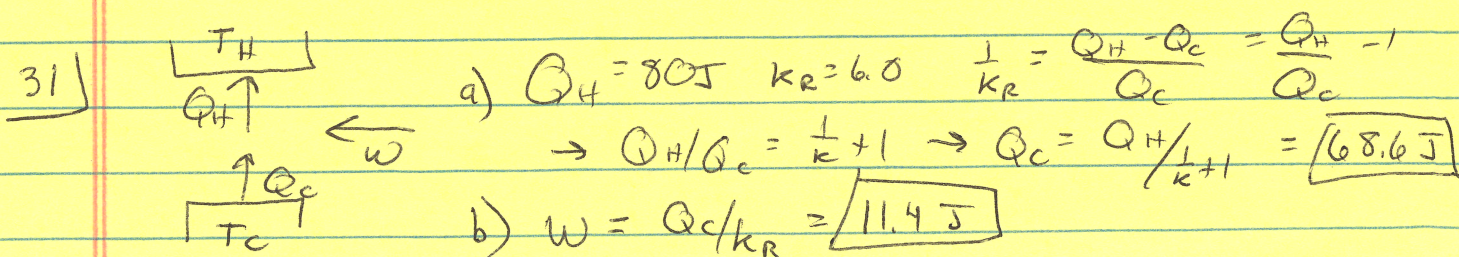 31
T_H
Q_H
W
Q_C
T_C
a) Q_H = 80J K_R = 6.0 1/K_R = (Q_H - Q_C)/Q_C = Q_H/Q_C - 1
→ Q_H/Q_C = 1/K + 1 → Q_C = Q_H/(1/K + 1) = 68.6 J
b) W = Q_C/K_R = 11.4 J